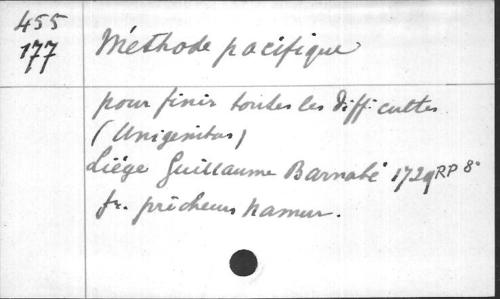 455
177
Méthode pacifique
pour finir toutes les difficultes
(Unigenitus)
Liége Guillaume Barnabé 1729 RP 8°
fr. prêcheurs Namur.